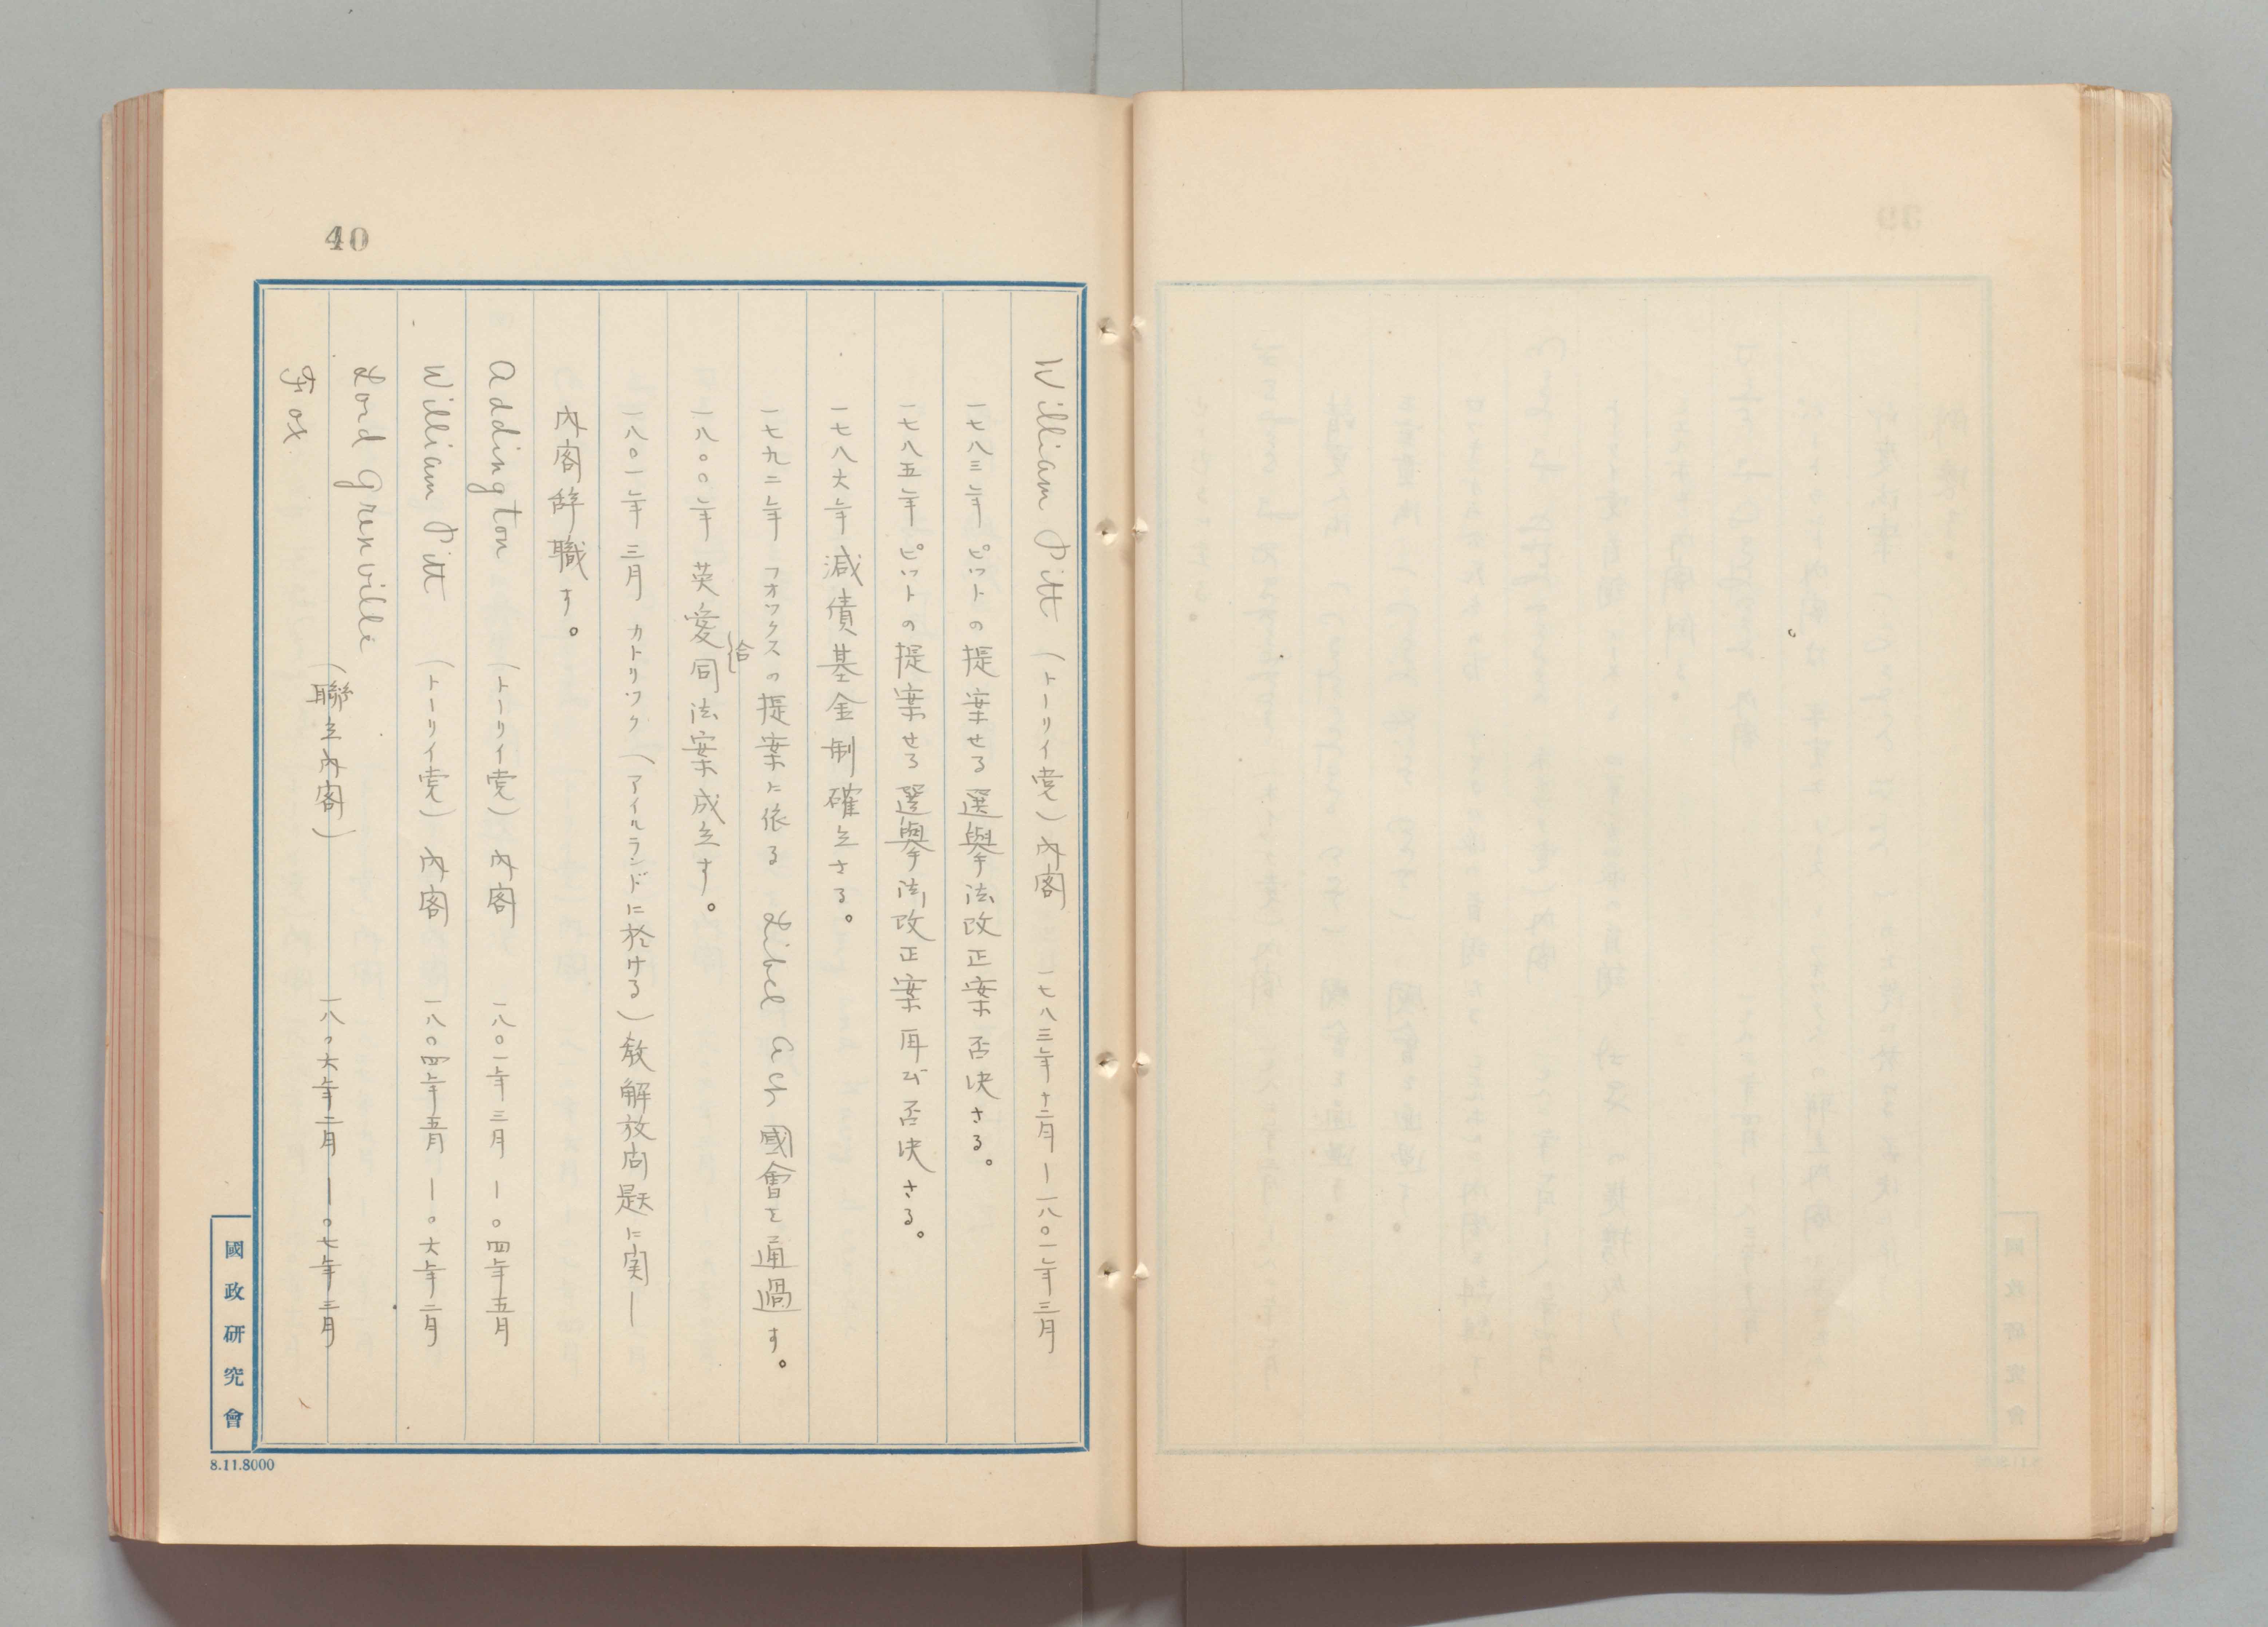 40
William Pitt (トーリイ党)內閣 一七八三年十二月―一八〇一年三月
一七八三年 ピットの提案せる選擧法改正案否決さる。
一七八五年 ピットの提案せる選擧法改正案再び否決さる。
一七八六年 減債基金制確立さる。
一七九二年 フオックスの提案に依る Libel 國會を通過す。
一八〇〇年 英愛合同法案成立す。
一八〇一年三月 カトリック(アイルランドに於ける)教解放問題に関し
內閣辞職す。
Addington (トーリイ党)內閣 一八〇一年三月―〇四年五月
William Pitt (トーリイ党)內閣 一八〇四年五月―〇六年二月
Lord Grenville
Fox
(聯立內閣) 一八〇六年二月―〇七年三月
國政研究會
8.11.8000